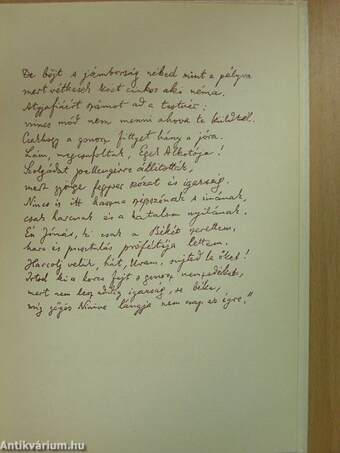 De böjt s jámborság néked mint a pélyva
mert vétkesek közt cinkos aki néma.
Atyjafiáért számot ad a testvér:
nincs mód nem menni ahova te küldtél.
Csakhogy a gonosz fittyet hány a jóra.
Lám, megcsufoltak, Egek Alkotója!
Szolgádat pellengérre állitották,
mert gyönge fegyver szózat és igazság.
Nincs is itt haszna szépszónak s imának,
csak harcnak és a hatalom nyilának.
Én Jónás, ki csak a Békét szerettem,
harc és pusztulás prófétája lettem.
Harcolj velük, hát, Uram, sujtsd le őket!
Irtsd ki a korcs fajt s gonosz nemzedéket,
mert nem lesz addig igazság, se béke,
míg gőgös Ninive lángja nem csap az égre."
Antikvárium.hu